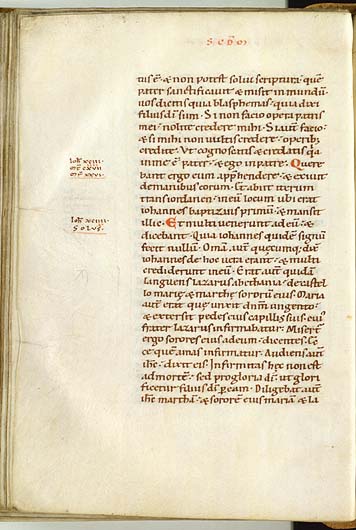 tus ē· & non potest solui scriptura· quē
pater sanctificauit & misit in mundū
uos dicitis quia blasphemas· quia dixi
filius dī sum· Si non facio opera patris
mei· nolite credere mihi· Si autē facio·
& si mihi non uultis credere· operib;
credite· Ut cognoscatis & credatis q̄a
in me ē pater· & ego in patre· Quere
bant ergo eum app̄hendere· & exiuit
de manibus eorum· Et abiit iterum
trans iordanen· in eū locum ubi erat
iohannes baptizans primū· & mansit
illic· Et multi uenerunt ad eū· &
dicebant· Quia iohannes quidē signū
fecit nullū· Omīa autē quęcumq; dix̄
iohannes de hoc uera erant· & multi
crediderunt in eū· Erat autē quidā
languens lazarus a bethania· de castel
lo marię & marthę sororū eius· Maria
autē erat quę unxit dn̄m ungento·
& extersit pedes eius capillis suis· cui'
frater lazarus infirmabatur· Miserūt
ergo sorores eius ad eum· dicentes· Dn̄e
ecce quē amas infirmatur· Audiens autē
ih̄c· dixit eis· Infirmitas hęc non est
ad mortē· sed pro gloria dī· ut glori
ficetur filius dī p̄ eam· Diligebat autē
ih̄c marthā· & sororē eius mariā· & la